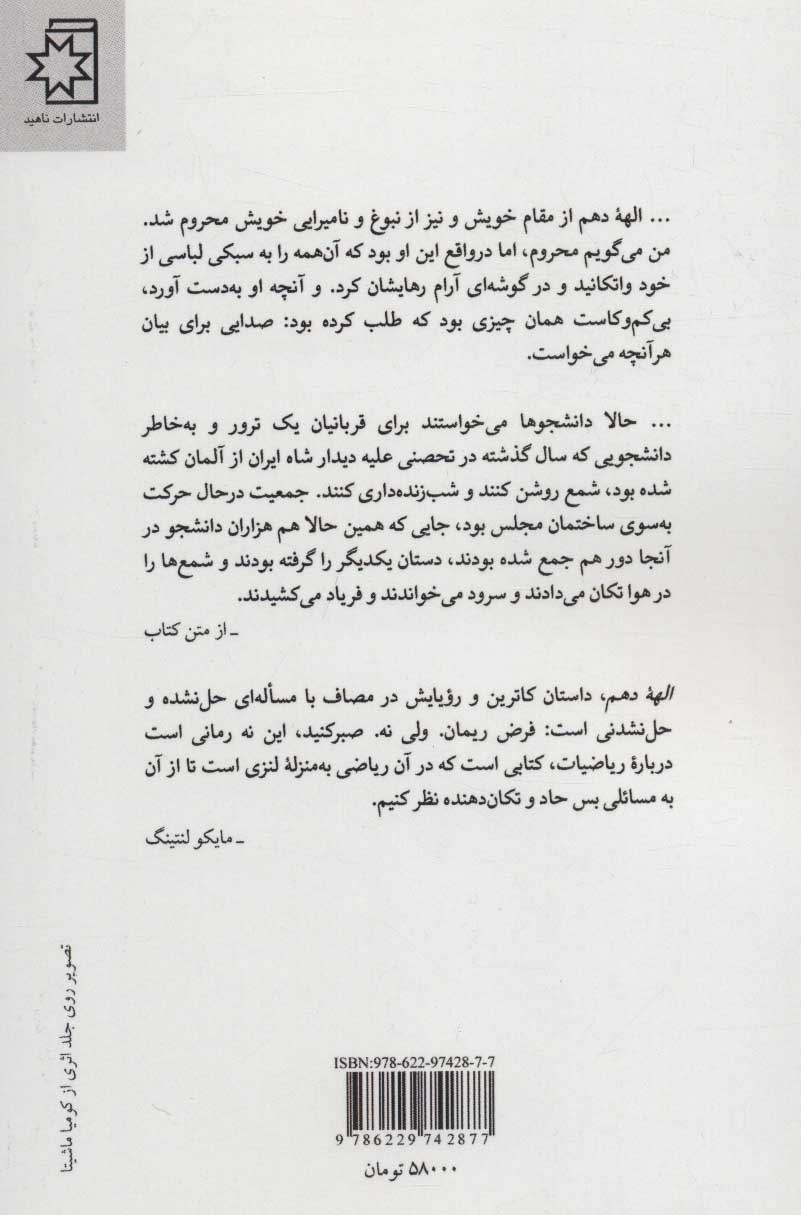 انتشارات ناهید
... الههٔ دهم از مقام خویش و نیز از نبوغ و نامیرایی خویش محروم شد.
من می‌گویم محروم، اما درواقع این او بود که آن‌همه را به سبکی لباسی از
خود واتکانید و در گوشه‌ای آرام رهایشان کرد. و آنچه او به‌دست آورد،
بی‌کم‌وکاست همان چیزی بود که طلب کرده بود: صدایی برای بیان
هرآنچه می‌خواست.
... حالا دانشجوها می‌خواستند برای قربانیان یک ترور و به‌خاطر
دانشجویی که سال گذشته در تحصنی علیه دیدار شاه ایران از آلمان کشته
شده بود، شمع روشن کنند و شب‌زنده‌داری کنند. جمعیت درحال حرکت
به‌سوی ساختمان مجلس بود، جایی که همین حالا هم هزاران دانشجو در
آنجا دور هم جمع شده بودند، دستان یکدیگر را گرفته بودند و شمع‌ها را
در هوا تکان می‌دادند و سرود می‌خواندند و فریاد می‌کشیدند.
ـ از متن کتاب
الههٔ دهم، داستان کاترین و رؤیایش در مصاف با مسأله‌ای حل‌نشده و
حل‌نشدنی است: فرض ریمان. ولی نه. صبرکنید، این نه رمانی است
دربارهٔ ریاضیات، کتابی است که در آن ریاضی به‌منزلهٔ لنزی است تا از آن
به مسائلی بس حاد و تکان‌دهنده نظر کنیم.
ـ مایکو لنتینگ
تصویر روی جلد اثری از کومیا ماشیتا
ISBN:978-622-97428-7-7
9 786229 742877
۵۸۰۰۰ تومان